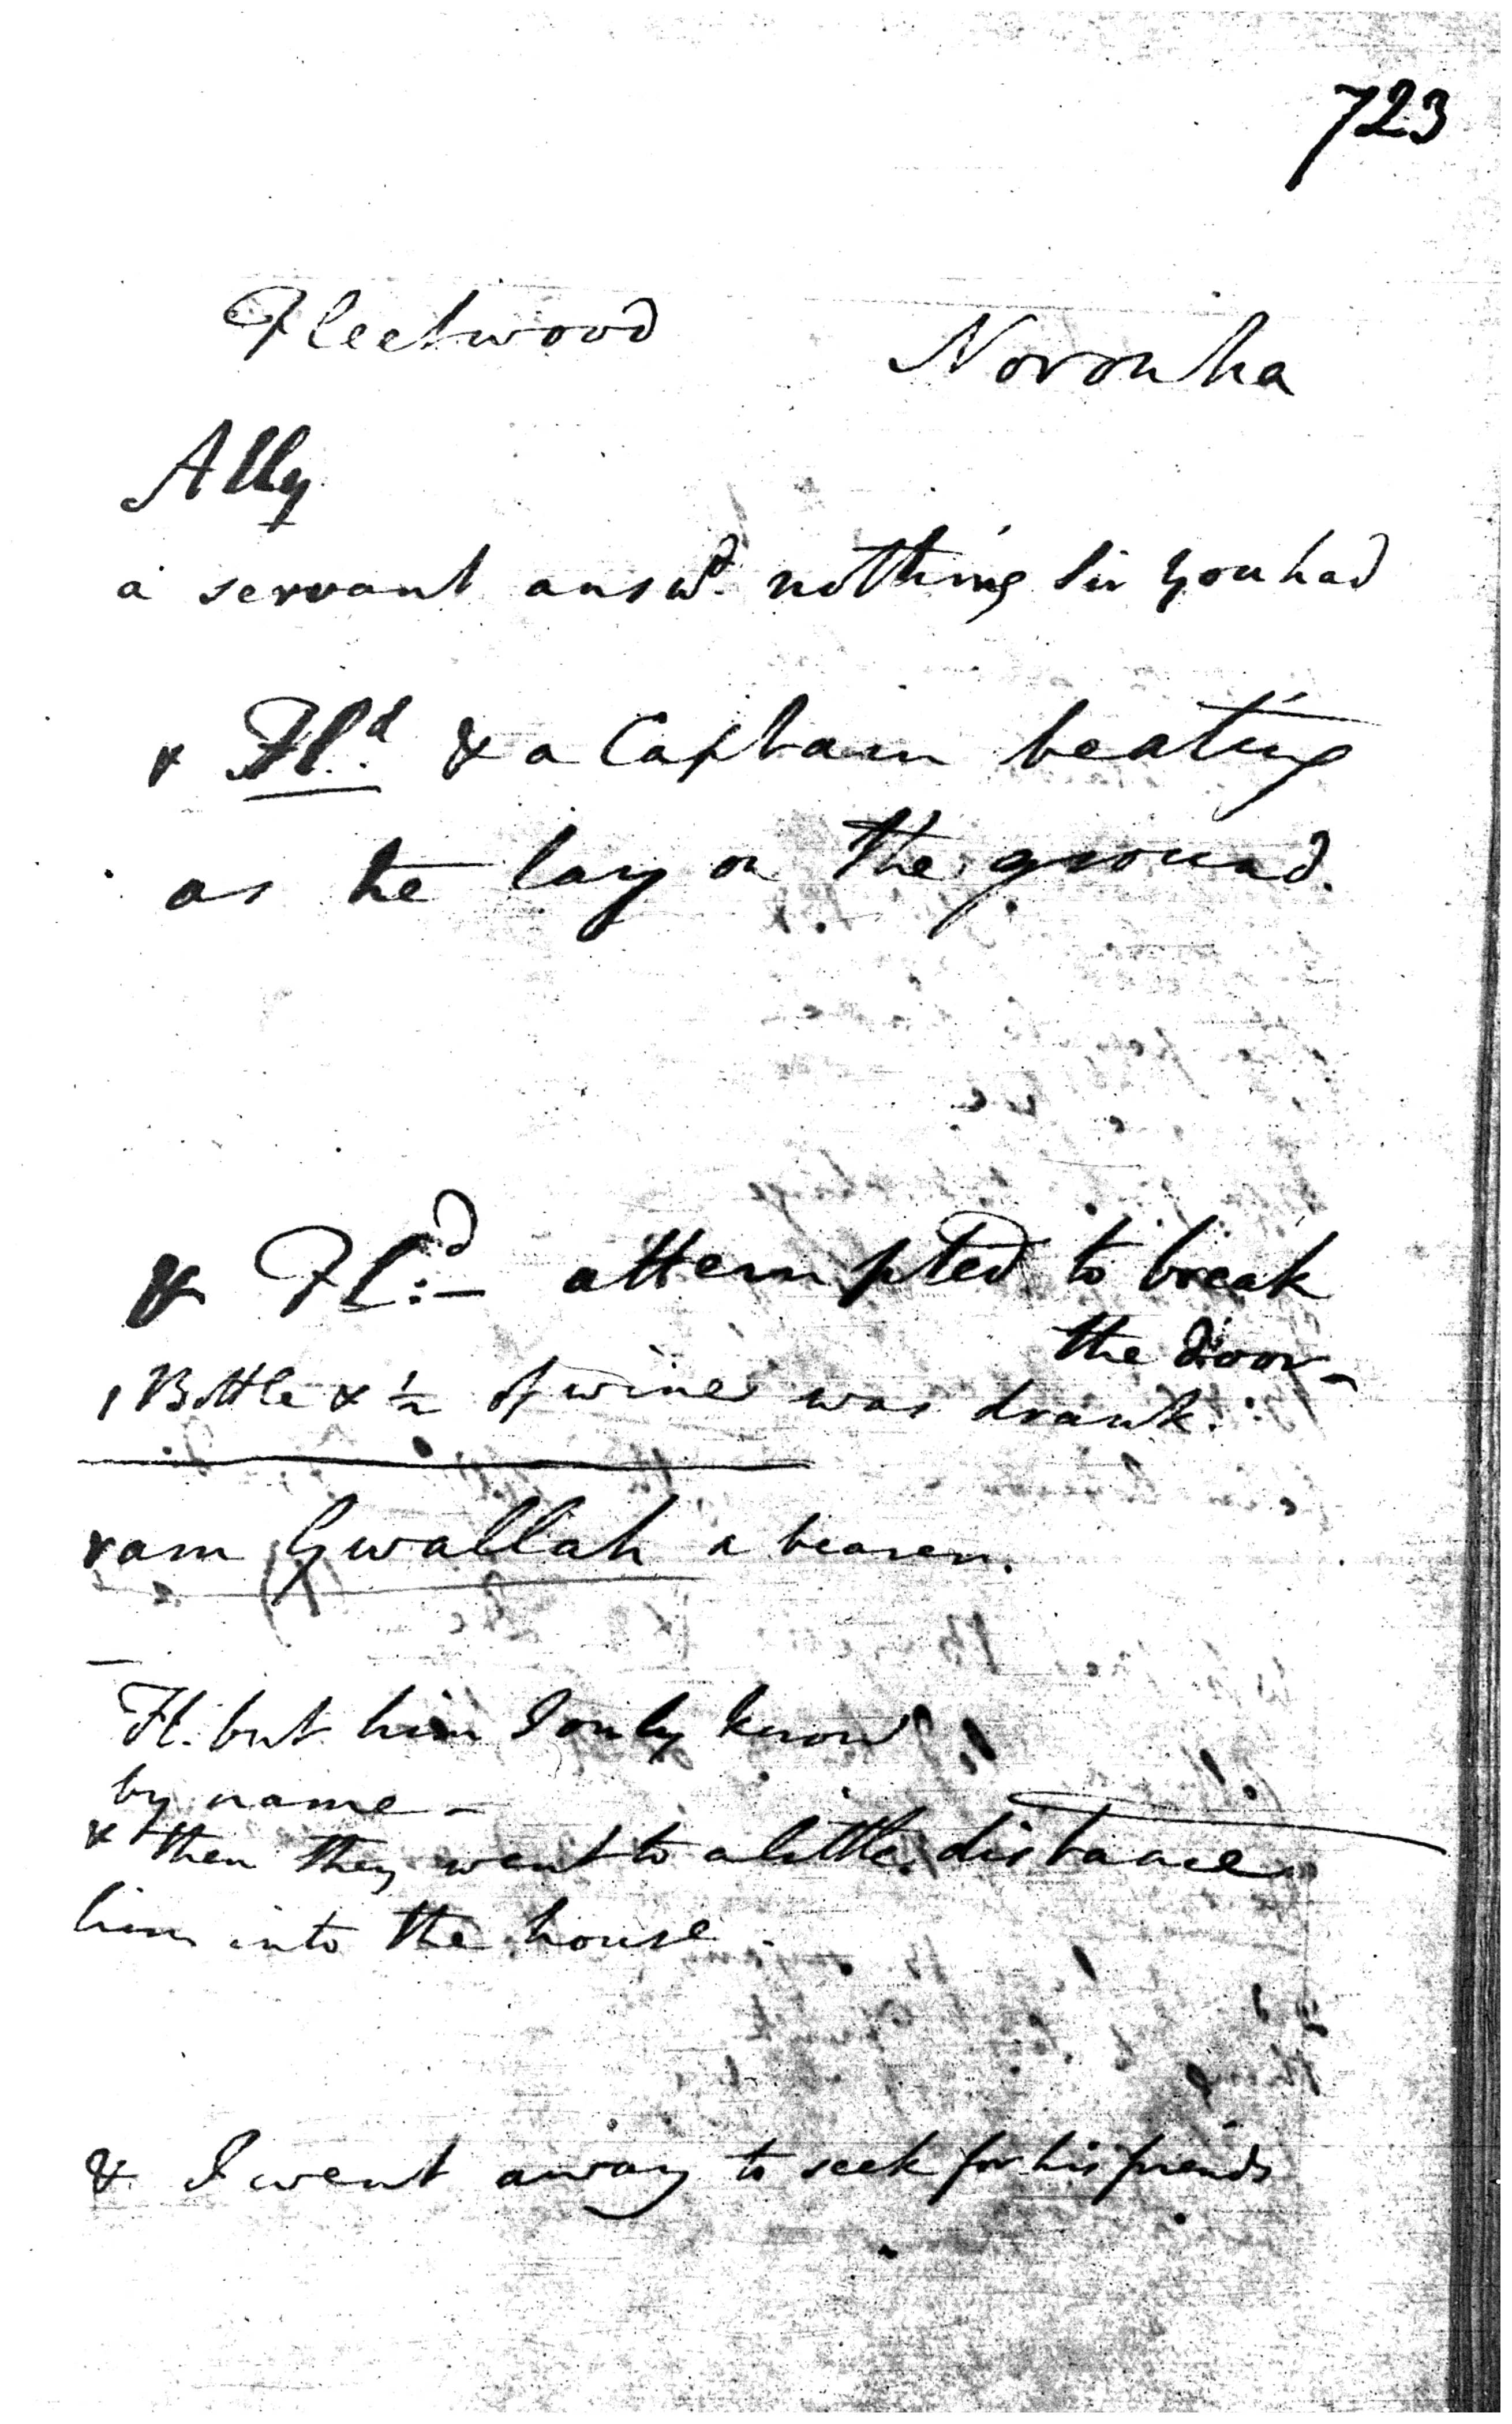 723
Fleetwood Noronha
Ally
a servant answd. nothing Sir you had
& Fld. & a Captain beating
as he lay on the ground.
& Fld:- attempted to break
the door-
1 Bottle & ½ of wine was drank.
ram Gwallah a bearer.
Fl. but him I only know
by name -
& then they went to a little distance
him into the house.
& I went away to seek for his friends